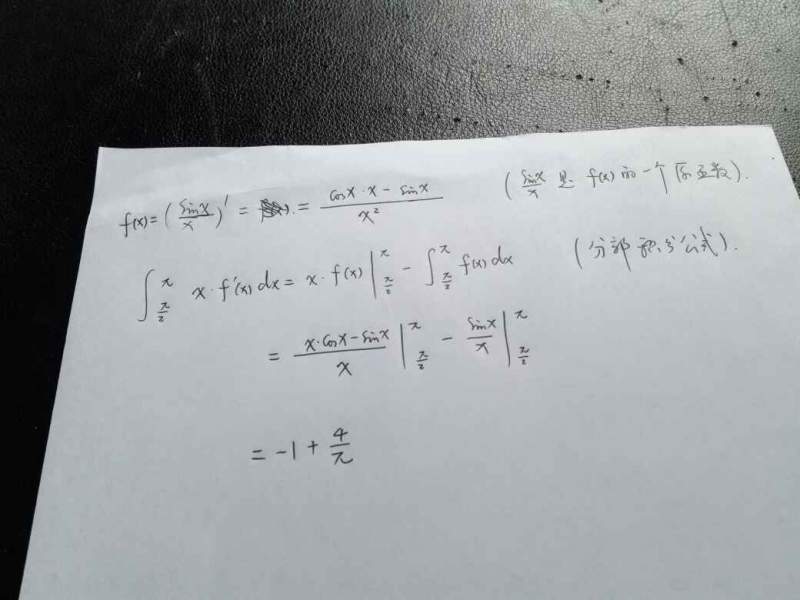 f(x) = (sinx/x)' = = (cosx·x - sinx)/x² (sinx/x 是 f(x) 的一个原函数).
∫_{π/2}^{π} x·f'(x) dx = x·f(x) |_{π/2}^{π} - ∫_{π/2}^{π} f(x) dx (分部积分公式).
= (x·cosx - sinx)/x |_{π/2}^{π} - sinx/x |_{π/2}^{π}
= -1 + 4/π